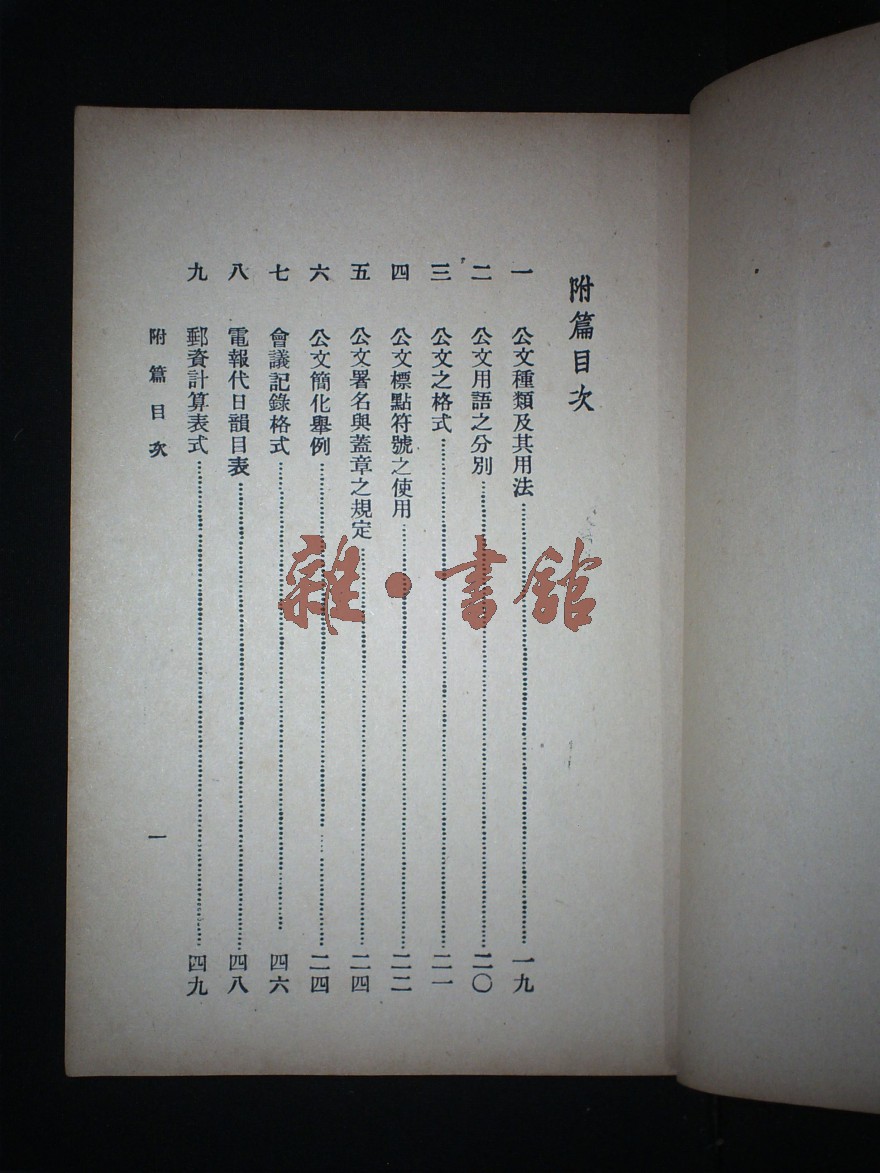 附篇目次
一 公文種類及其用法 一九
二 公文用語之分別 二〇
三 公文之格式 二一
四 公文標點符號之使用 二二
五 公文署名與蓋章之規定 二四
六 公文簡化舉例 二四
七 會議記錄格式 四六
八 電報代日韻目表 四八
九 郵資計算表式 四九
附篇目次 一
雜·書館